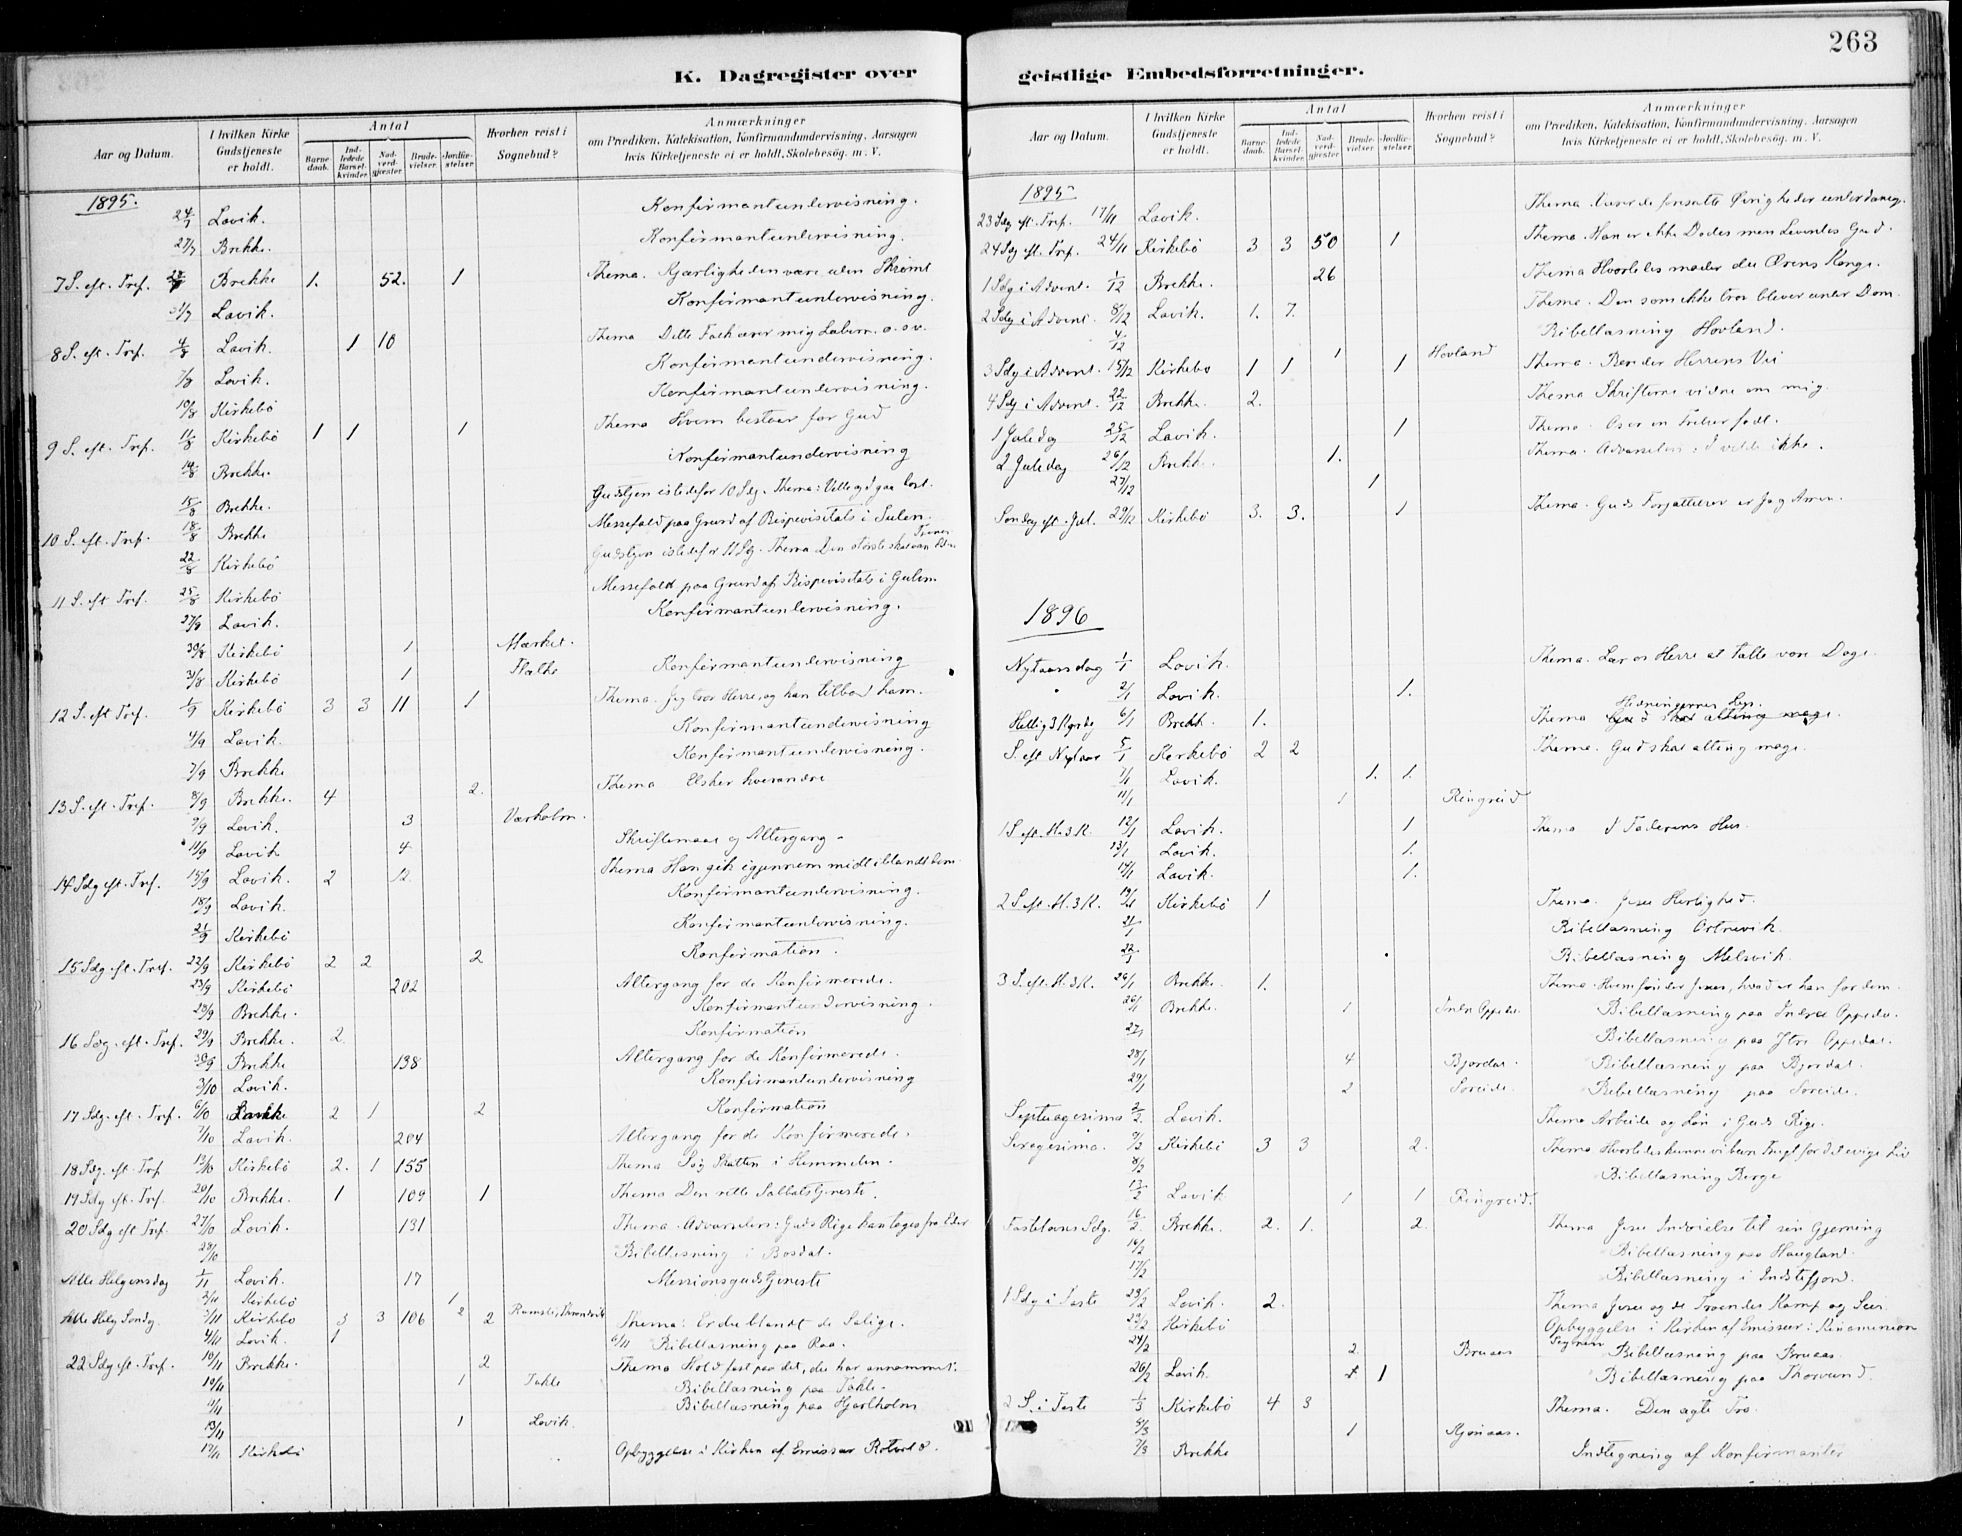 263
K. Dagregister over
geistlige Embedsforretninger.
Aar og Datum.
I hvilken Kirke Gudstjeneste er holdt.
Antal
Barne-daab.
Ind-ledede Barsel-kvinder.
Nad-verd-gjæster
Brude-vielser
Jordfæ-stelser
Hvorhen reist i Sognebud?
Anmærkninger
om Prædiken, Katekisation, Konfirmandundervisning, Aarsagen
hvis Kirketjeneste ei er holdt, Skolebesøg. m. V.
1895.
24/7 Lavik. Konfirmantundervisning.
27/7 Brekke. Konfirmantundervisning.
7 S. eft. Tref. Brekke 1. 52. 1 Thema. Kjærligheden være uden Skrømt
31/7 Lavik. Konfirmantundervisning.
8 S. eft. Tref. 4/8 Lavik. 1 10 Thema Dette Folk ærer mig Læbern. o. s v.
7/8 Lavik. Konfirmantundervisning.
10/8 Kirkebö Konfirmantundervisning.
9 S. eft. Tref. 11/8 Kirkebö 1 1 1 Thema Hvem bestaar for Gud
14/8 Brekke. Konfirmantundervisning
15/8 Brekke. Gudstjen istedefor 10 Sdg. Thema: Ville og I gaa bort.
10 S. eft. Tref. 18/8 Brekke Messefald paa Grund af Bispevisitats i Sulen.
22/8 Kirkebö Gudstjen istedefor 11 Sdg. Thema Den störste skal være Eders Tjener
11 S. eft Tref. 25/8 Kirkebö Messefald paa Grund af Bispevisitats i Gulen.
27/8 Lavik. Konfirmantundervisning.
30/8 Kirkebö 1 Mærket.
31/8 Kirkebö 1 Konfirmantundervisning
12 S. eft Tref. 1/9 Kirkebö 3 3 11 1 Thema. Jeg tror Herre, og han tilbad ham.
4/9 Lavik. Konfirmantundervisning
7/9 Brekke Konfirmantundervisning.
13 S. eft. Tref. 8/9 Brekke. 4 2. Thema Elsker hverandre
9/9 Lavik. 3 Værholm.
11/9 Lavik 4 Skriftemaal og Altergang.
14 Sdg eft. Tref. 15/9 Lavik. 2 12. Thema Han gik igjennem midt iblandt dem
18/9 Lavik. Konfirmantundervisning.
21/9 Kirkebö Konfirmantundervisning.
15 Sdg eft. Tref. 22/9 Kirkebö 2 2 2 Konfirmation.
23/9 Kirkebö 202 Altergang for de Konfirmerede.
28/9 Brekke. Konfirmantundervisning.
16 Sdg. eft. Tref. 29/9 Brekke. 2 Konfirmation
30/9 Brekke 138 Altergang for de Konfirmerede.
3/10 Lavik. Konfirmantundervisning
17 Sdg. eft. Tref. 6/10 2 1 2 Konfirmation
7/10 Lavik. 204 Altergang for de Konfirmerede.
18 Sdg. eft. Tref 13/10 Kirkebö 2. 1 155 Thema Søg Skatten i Himmelen.
19 Sdg eft. Tref. 20/10 Brekke. 1 109 1 Thema Den rette Sabbatstjeneste.
20 Sdg eft Tref. 27/10 Lavik. 131 Thema. Advarselen: Guds Rige kan tages fra Eder
28/10 Bibellæsning i Bosdal.
Alle Helgensdag 1/11 Lavik. 17 Missionsgudstjeneste
2/11 Kirkebö 1
Alle Helg Sondg. 3/11 Kirkebö 3 3 106 2 2 Thema: Er du blandt de Salige.
4/11 Lavik. 1 6/11 Bibellæsning paa Raa.
22 Sdg eft. Tref. 10/11 Brekke. 2 Thema Hold fast paa det, du har annammet.
10/11 1 Takle Bibellæsning paa Takle.
11/11 Bibellæsning paa Hjartholm
13/11 1 Lavik.
17/11 Kirkebö Opbyggelse i Kirken af Emissær
Aar og Datum.
I hvilken Kirke Gudstjeneste er holdt.
Antal
Barne-daab.
Ind-ledede Barsel-kvinder
Nad-verd-gjæster
Brude-vielser
Jordfæ-stelser
Hvorhen reist i Sognebud?
Anmærkninger
om Prædiken, Katekisation, Konfirmandundervisning, Aarsagen
hvis Kirketjeneste ei er holdt, Skolebesög. m. V.
1895
23 Sdg eft. Tref. 17/11 Lavik. Thema. Lær de foresatte Øvrigheder underdanig.
24 Sdg eft. Tref. 24/11 Kirkebö 3 3 50 1 Thema. Han er ikke Dødes men Levendes Gud.
1 Sdg i Advent. 1/12 Brekke. 26 Thema Hvorledes møder du Ærens Konge.
2 Sdg i Advent 8/12 Lavik. 1. 7. Thema. Den som ikke tror bliver under Dom.
4/12 1 Hovland Bibellæsning Hovland.
3 Sdg i Advent. 15/12 Kirkebo 1 1 1 Thema. Bereder Herrens Vei
4 Sdg i Advent. 22/12 Brekke. 2. Thema Skrifterne vidne om mig.
1 Juledag 25/12 Lavik. 1 Thema. Os er en Frelser født.
2 Juledag 26/12 Brekke. 1. Thema. Advarselen: I vilde ikke.
27/12 1
Søndag eft. Jul. 29/12 Kirkebö 3. 3. 1 Thema. Guds Forjættelser er Ja og Amen.
1896
Nytaarsdag 1/1 Lavik. Thema. Lær os Herre at tælle vore Dage.
2/1 Lavik. 1.
Hellig 3 Kgsdg 6/1 Brekk. 1. Thema Hedningernes Lys.
S. eft Nytaar 5/1 Kirkebö 2 2 Thema. Gud skal alting mage.
7/1 Lavik. 1. 1.
11/1 1 Ringreid
1 S. eft. H. 3 K. 12/1 Lavik. 1 Thema I Faderens Hus.
13/1 Lavik. 1.
14/1 Lavik. 1.
2 S. eft. H. 3 K. 19/1 Kirkebö 1 Thema. Jesu Herlighed.
21/1 Bibellæsning Ortnevik.
22/1 Bibellæsning Melsvik.
3 S. eft. H. 3 K. 26/1 Brekke. 1. Thema. Hvem finder Jesus, hvad er han for dem.
26/1 Brekke. 1 Indre Oppedal Bibellæsning paa Indre Oppedal
27/1 Bibellæsning paa Ytre Oppedal.
28/1 4 Bjordal. Bibellæsning paa Bjordal.
29/1 2 Soreide. Bibellæsning paa Soreide.
Septuagesima 2/2 Lavik. Thema Arbeide og Løn i Guds Rige.
Sexagesima. 9/2 Kirkebö 3 3 2. Thema Hvorledes kunne vi bære Frugt for det evige Liv
8/2 Bibellæsning Berge
13/2 Lavik 1 1 Ringreid.
Fastelavns Sdg. 16/2 Brekke. 2. 1. 2. Thema Jesu Indvielse til sin Gjerning
16/2 Bibellæsning paa Haugland.
17/2 Bibellæsning i Indrefjord.
1 Sdg i Faste 23/2 Lavik. 2. Thema Jesu og de Troendes Kamp og Seir.
23/2 Kirkebö Opbyggelse i Kirken af Emissær i Kinamission
24/2 2 Bruaas Bibellæsning paa Bruaas.
26/2 Lavik. 1 Bibellæsning paa Thorvund.
2 S. i Faste 1/3 Kirkebö 4 3 Thema. Den ægte Tro.
5/3 1
7/3 Brekke Indtegning af Konfirmanter